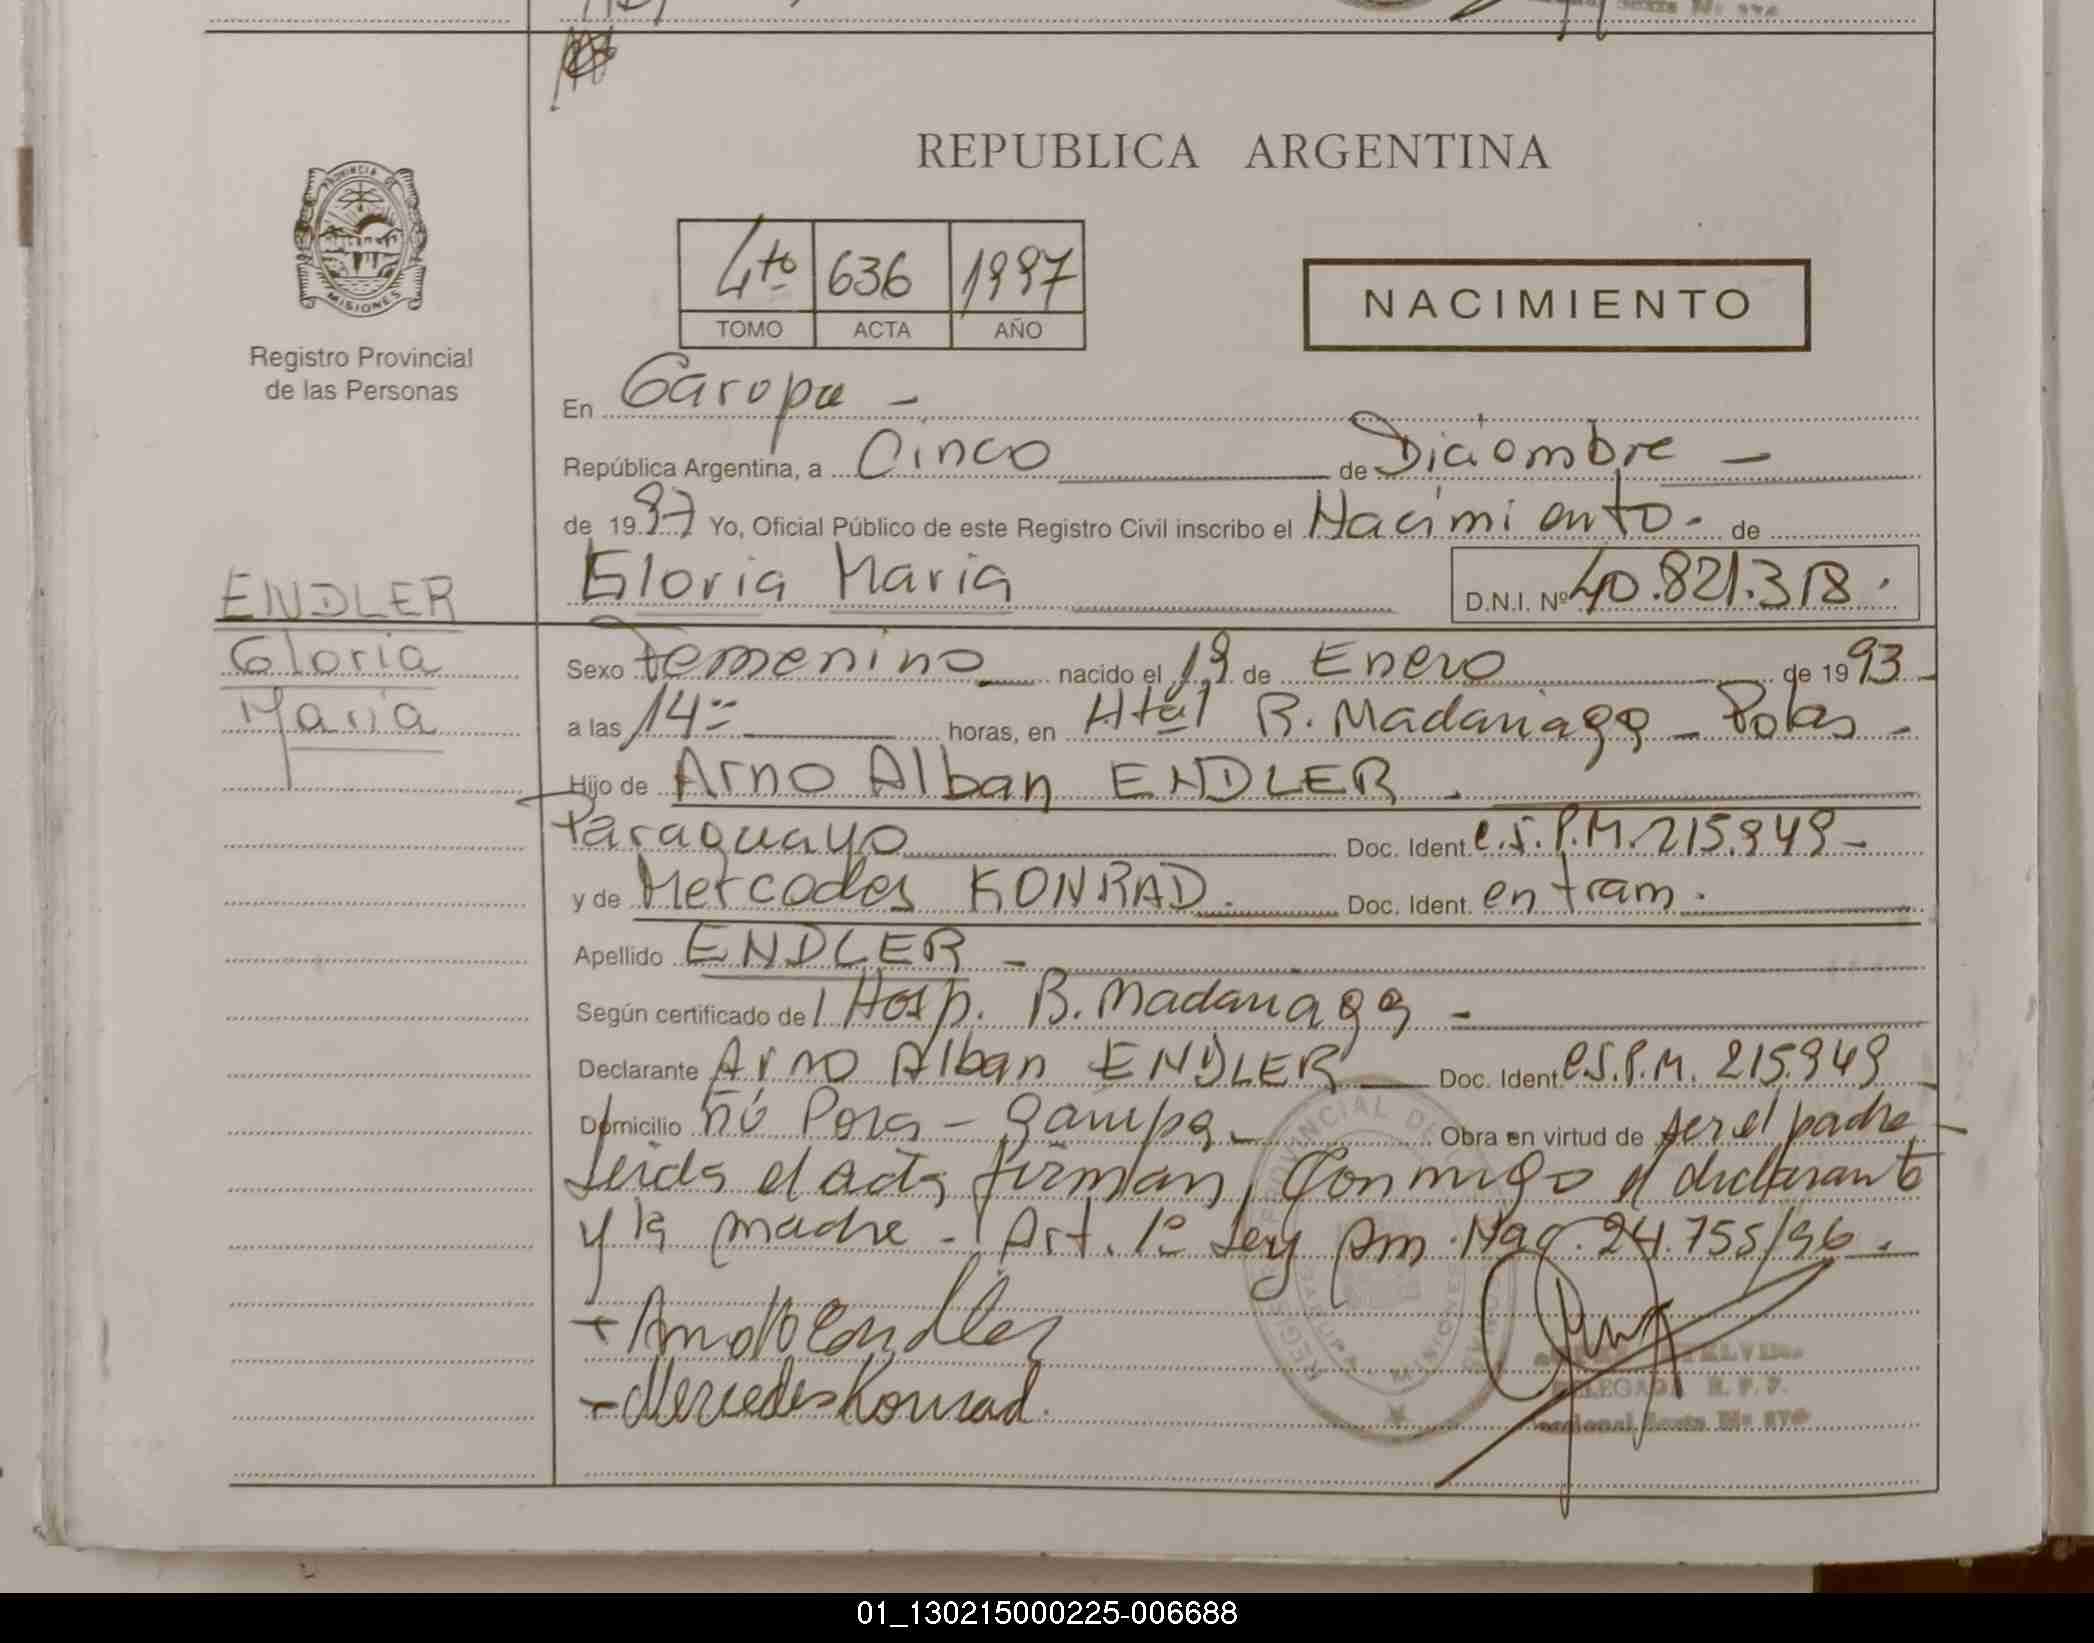 REPUBLICA ARGENTINA
PROVINCIA DE
MISIONES
Registro Provincial
de las Personas
4to 636 1997
TOMO ACTA AÑO
NACIMIENTO
En Garupa -
República Argentina, a Cinco de Diciembre -
de 1997 Yo, Oficial Público de este Registro Civil inscribo el Nacimiento. de
Gloria Maria D.N.I. Nº 40.821.318.
ENDLER
Gloria
Maria
Sexo Femenino nacido el 19 de Enero de 1993
a las 14 horas, en Htal R. Madariaga - Pdas -
Hijo de Arno Alban ENDLER.
Paraguayo Doc. Ident. C.I.P.M. 215.949 -
y de Mercedes KONRAD. Doc. Ident. en tram.
Apellido ENDLER -
Según certificado del Hosp. R. Madariaga -
Declarante Arno Alban ENDLER Doc. Ident. C.I.P.M. 215.949
Domicilio Ñú Pora - Garupa - Obra en virtud de ser el padre -
Leida el acta firman, Conmigo el declarante
y la madre - Art. 1º Ley Nac. 24.755/96.
Endler
- Mercedes Konrad.
DELEGADA R. P. P.
01_130215000225-006688